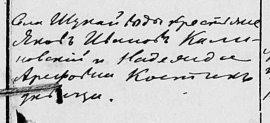 Села Шукай Воды крестьяне
Яковъ Ивановъ Кали-
новскiй и Надежда
Арефьева Костюк